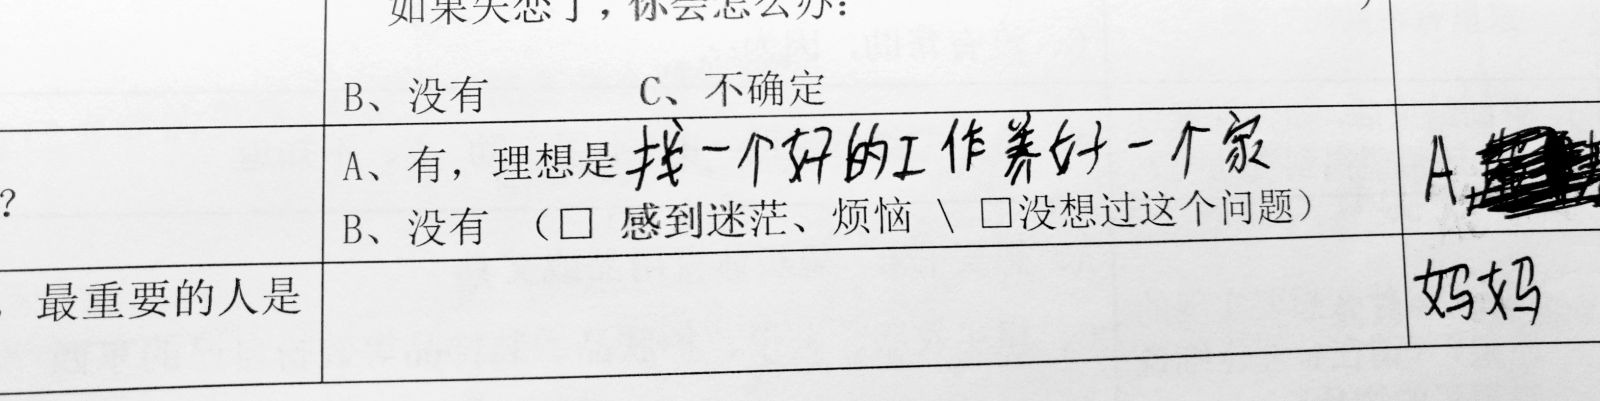 如果失恋了，你会怎么办：
B、没有 C、不确定
？
A、有，理想是找一个好的工作养好一个家
A
B、没有 （□ 感到迷茫、烦恼 \ □没想过这个问题）
最重要的人是
妈妈